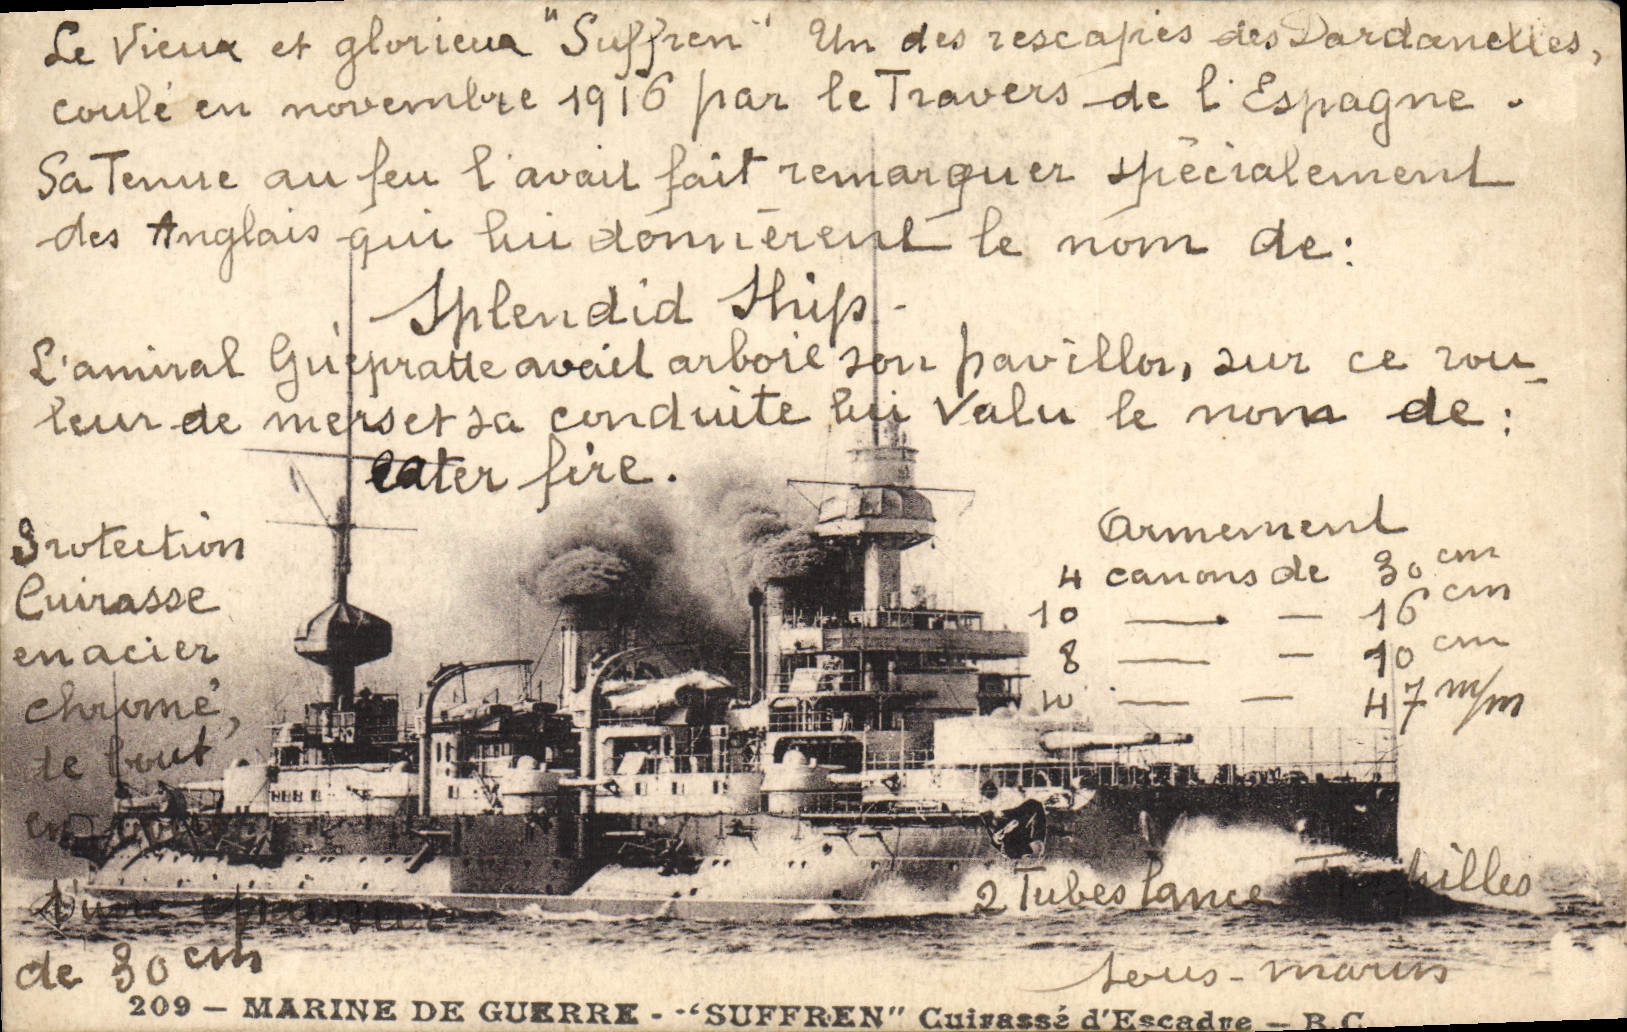 Le Vieux et glorieux "Suffren" Un des rescapés des Dardanelles,
coulé en novembre 1916 par le Travers de l'Espagne.
Sa Tenue au feu l'avait fait remarquer spécialement
des Anglais qui lui donnèrent le nom de:
Splendid Ship-
L'amiral Guépratte avait arboré son pavillon, sur ce rou-
leur de mers et sa conduite lui valu le nom de:
eater fire.
Protection
Cuirasse
en acier
chromé,
de bout
en
d'une épaisseur
de 30 cm
Armement
4 canons de 30 cm
10 — — 16 cm
8 — — 10 cm
10 — — 47 m/m
2 Tubes lance Torpilles
sous-marins
209 - MARINE DE GUERRE - "SUFFREN" Cuirassé d'Escadre - B.C.